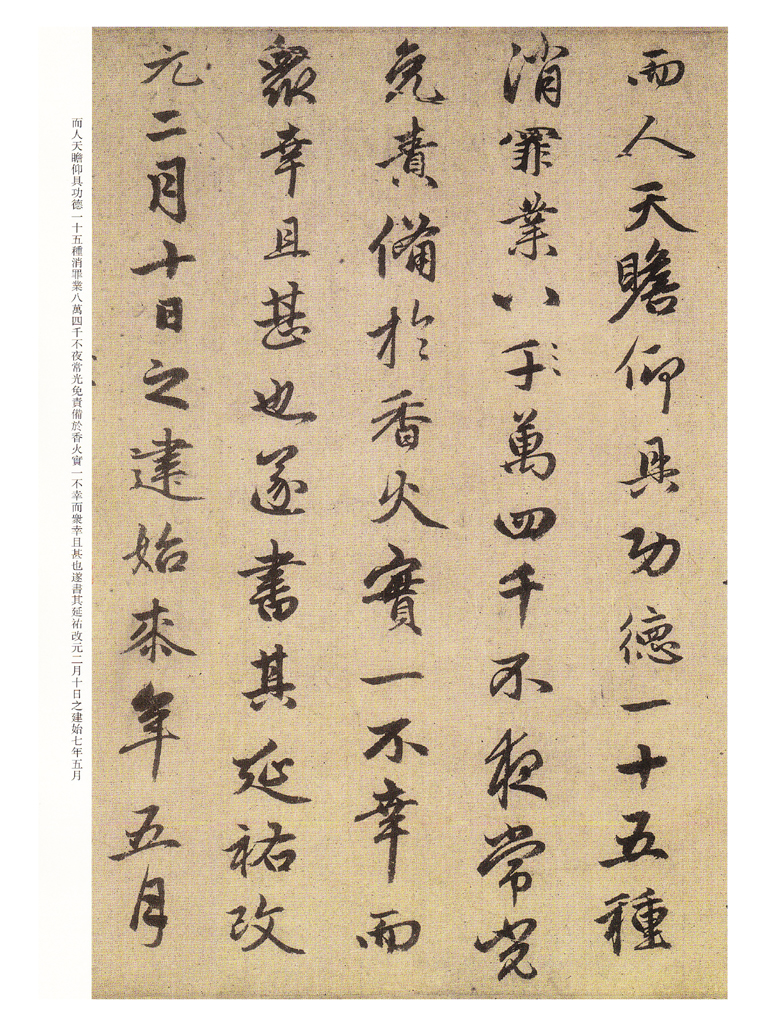 而人天瞻仰具功德一十五種
消罪業八千萬四千不夜常光
免責備於香火實一不幸而
衆幸且甚也遂書其延祐改
元二月十日之建始来年五月
而人天瞻仰具功德一十五種消罪業八萬四千不夜常光免責備於香火實一不幸而衆幸且甚也遂書其延祐改元二月十日之建始七年五月